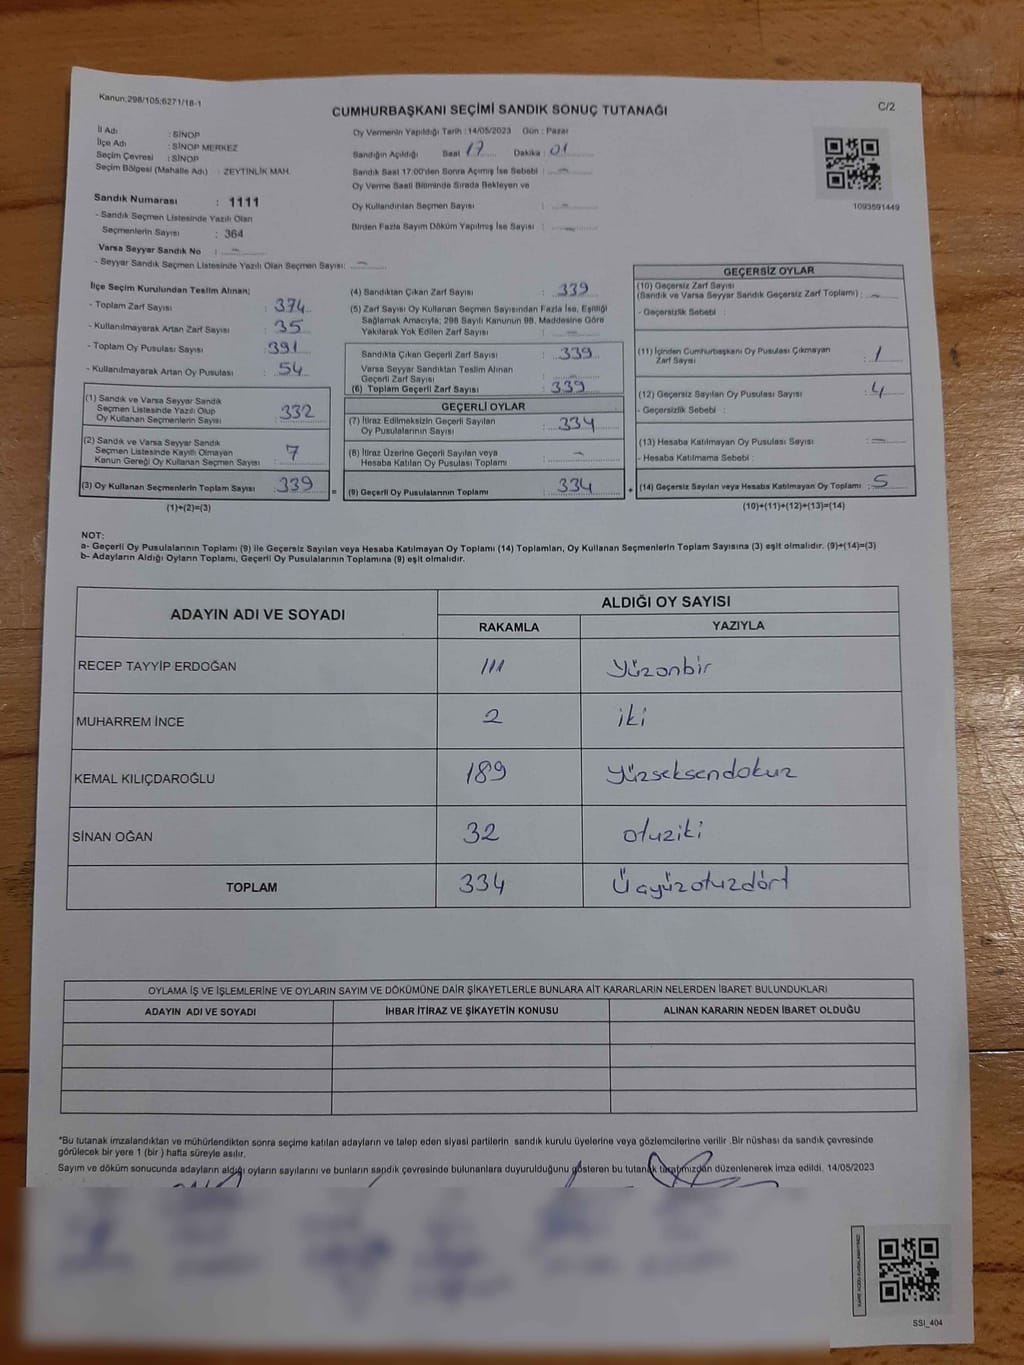 Kanun;298/105;6271/18-1
CUMHURBAŞKANI SEÇİMİ SANDIK SONUÇ TUTANAĞI
C/2
İl Adı : SİNOP
İlçe Adı : SİNOP MERKEZ
Seçim Çevresi : SİNOP
Seçim Bölgesi (Mahalle Adı) : ZEYTİNLİK MAH.
Sandık Numarası : 1111
- Sandık Seçmen Listesinde Yazılı Olan
Seçmenlerin Sayısı : 364
Varsa Seyyar Sandık No : -
- Seyyar Sandık Seçmen Listesinde Yazılı Olan Seçmen Sayısı: -
Oy Vermenin Yapıldığı Tarih : 14/05/2023 Gün : Pazar
Sandığın Açıldığı Saat 17 Dakika : 01
Sandık Saat 17:00'den Sonra Açımış İse Sebebi : -
Oy Verme Saati Bitiminde Sırada Bekleyen ve
Oy Kullandırılan Seçmen Sayısı : -
Birden Fazla Sayım Döküm Yapılmış İse Sayısı : -
1093591449
İlçe Seçim Kurulundan Teslim Alınan;
- Toplam Zarf Sayısı : 374
- Kullanılmayarak Artan Zarf Sayısı : 35
- Toplam Oy Pusulası Sayısı : 391
- Kullanılmayarak Artan Oy Pusulası : 54
(1) Sandık ve Varsa Seyyar Sandık
Seçmen Listesinde Yazılı Olup
Oy Kullanan Seçmenlerin Sayısı : 332
(2) Sandık ve Varsa Seyyar Sandık
Seçmen Listesinde Kayıtlı Olmayan
Kanun Gereği Oy Kullanan Seçmen Sayısı : 7
(3) Oy Kullanan Seçmenlerin Toplam Sayısı : 339
(1)+(2)=(3)
(4) Sandıktan Çıkan Zarf Sayısı : 339
(5) Zarf Sayısı Oy Kullanan Seçmen Sayısından Fazla İse, Eşitliği
Sağlamak Amacıyla; 298 Sayılı Kanunun 98. Maddesine Göre
Yakılarak Yok Edilen Zarf Sayısı : -
Sandıkta Çıkan Geçerli Zarf Sayısı : 339
Varsa Seyyar Sandıktan Teslim Alınan
Geçerli Zarf Sayısı : -
(6) Toplam Geçerli Zarf Sayısı : 339
GEÇERLİ OYLAR
(7) İtiraz Edilmeksizin Geçerli Sayılan
Oy Pusulalarının Sayısı : 334
(8) İtiraz Üzerine Geçerli Sayılan veya
Hesaba Katılan Oy Pusulası Toplamı : -
= (9) Geçerli Oy Pusulalarının Toplamı : 334
GEÇERSİZ OYLAR
(10) Geçersiz Zarf Sayısı
(Sandık ve Varsa Seyyar Sandık Geçersiz Zarf Toplamı) : -
- Geçersizlik Sebebi :
(11) İçinden Cumhurbaşkanı Oy Pusulası Çıkmayan
Zarf Sayısı : 1
(12) Geçersiz Sayılan Oy Pusulası Sayısı : 4
- Geçersizlik Sebebi :
(13) Hesaba Katılmayan Oy Pusulası Sayısı : -
- Hesaba Katılmama Sebebi :
+ (14) Geçersiz Sayılan veya Hesaba Katılmayan Oy Toplamı : 5
(10)+(11)+(12)+(13)=(14)
NOT:
a- Geçerli Oy Pusulalarının Toplamı (9) ile Geçersiz Sayılan veya Hesaba Katılmayan Oy Toplamı (14) Toplamları, Oy Kullanan Seçmenlerin Toplam Sayısına (3) eşit olmalıdır. (9)+(14)=(3)
b- Adayların Aldığı Oyların Toplamı, Geçerli Oy Pusulalarının Toplamına (9) eşit olmalıdır.
ADAYIN ADI VE SOYADI ALDIĞI OY SAYISI
RAKAMLA YAZIYLA
RECEP TAYYİP ERDOĞAN 111 Yüzonbir
MUHARREM İNCE 2 iki
KEMAL KILIÇDAROĞLU 189 Yüzseksendokuz
SİNAN OĞAN 32 otuziki
TOPLAM 334 Üçyüzotuzdört
OYLAMA İŞ VE İŞLEMLERİNE VE OYLARIN SAYIM VE DÖKÜMÜNE DAİR ŞİKAYETLERLE BUNLARA AİT KARARLARIN NELERDEN İBARET BULUNDUKLARI
ADAYIN ADI VE SOYADI İHBAR İTİRAZ VE ŞİKAYETİN KONUSU ALINAN KARARIN NEDEN İBARET OLDUĞU
*Bu tutanak imzalandıktan ve mühürlendikten sonra seçime katılan adayların ve talep eden siyasi partilerin sandık kurulu üyelerine veya gözlemcilerine verilir .Bir nüshası da sandık çevresinde
görülecek bir yere 1 (bir ) hafta süreyle asılır.
Sayım ve döküm sonucunda adayların aldığı oyların sayılarını ve bunların sandık çevresinde bulunanlara duyurulduğunu gösteren bu tutanak tarafımızdan düzenlenerek imza edildi. 14/05/2023
SSI_404